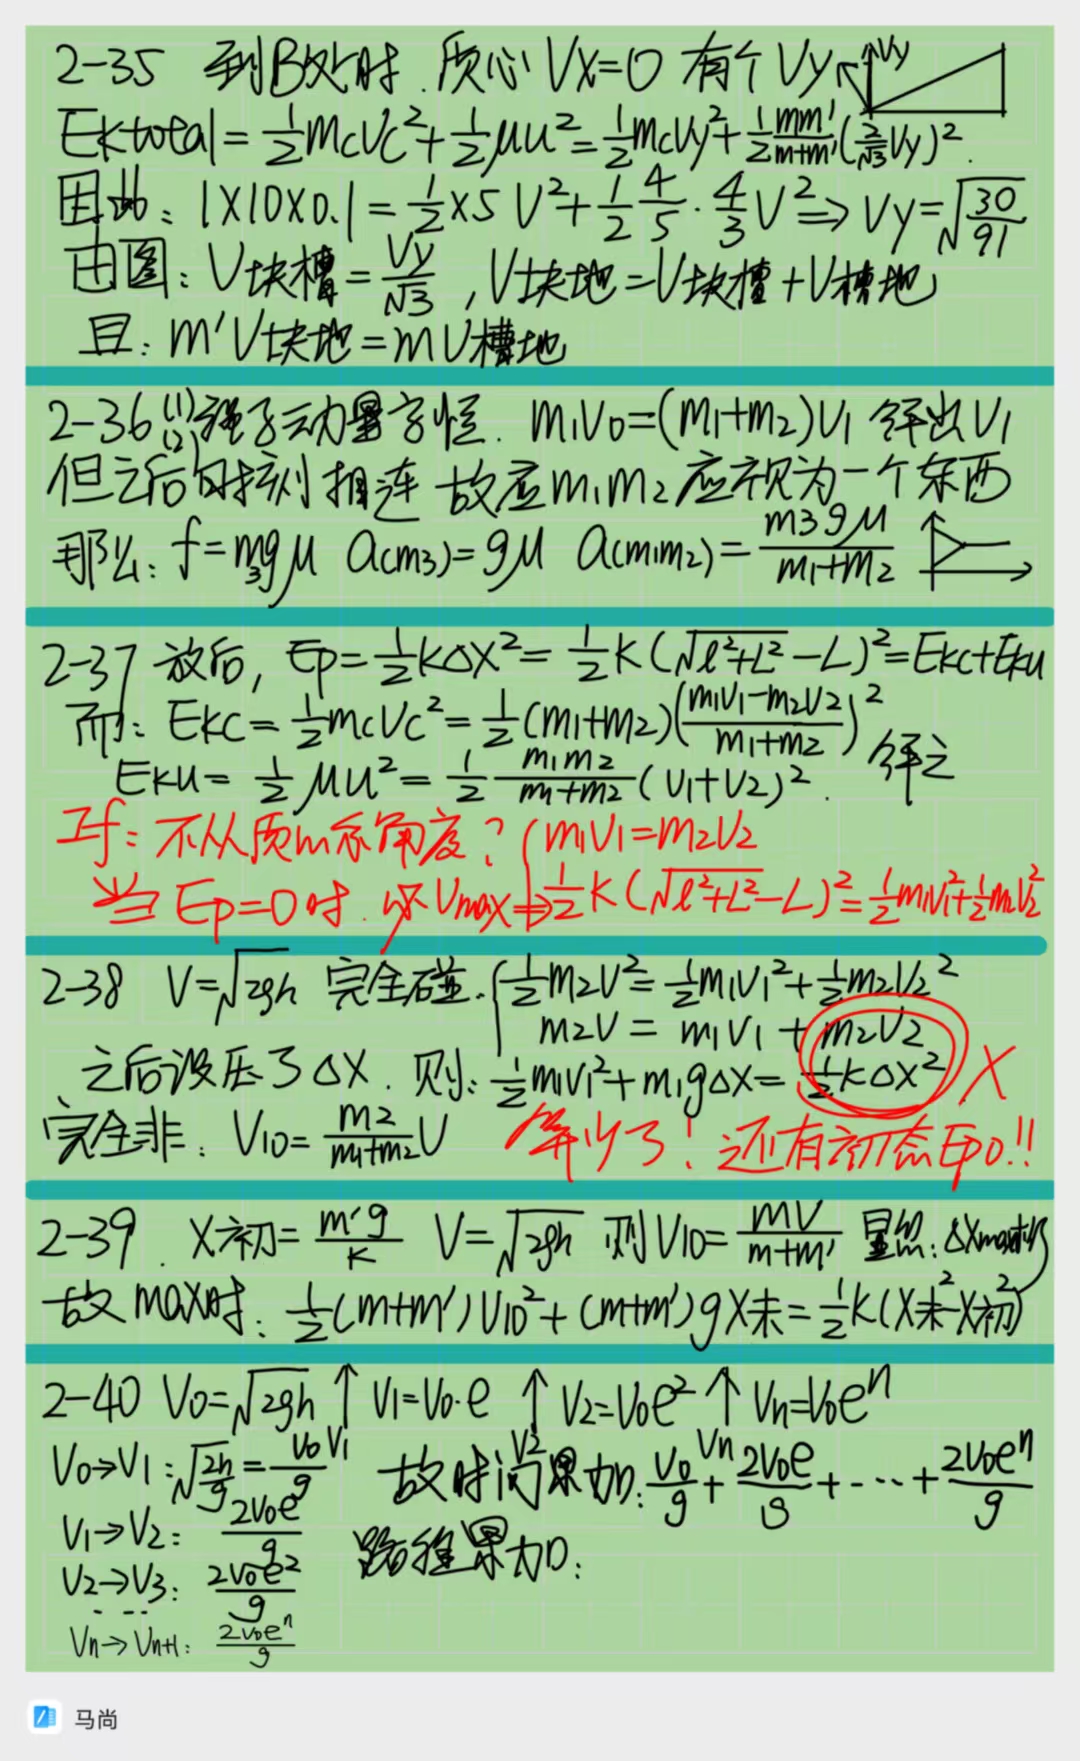 2-35 到B处时.质心Vx=0 有个Vy Vy
Ektotal=1/2 mcVc²+1/2 μu²=1/2 mcVy²+1/2 mm'/(m+m') (2/√3 Vy)².
因此:1×10×0.1=1/2×5 V²+1/2 4/5·4/3 V²⇒Vy=√(30/91)
由图:V块槽=Vy/√3,V块地=V块槽+V槽地
且:m'V块地=mV槽地
2-36 (1)(2)强子动量守恒.m1V0=(m1+m2)V1 解出V1
但之后时刻相连 故应m1m2应视为一个东西
那么:f=m3gμ a(m3)=gμ a(m1m2)=m3gμ/(m1+m2)
2-37 放后,Ep=1/2 kΔx²=1/2 k(√(l²+L²)-L)²=Ekc+Eku
而:Ekc=1/2 mcVc²=1/2 (m1+m2)((m1V1-m2V2)/(m1+m2))²
Eku=1/2 μu²=1/2 m1m2/(m1+m2) (V1+V2)². 解之
If:不从质心系角度?{m1V1=m2V2
当Ep=0时.必Vmax⇒1/2 k(√(l²+L²)-L)²=1/2 m1V1²+1/2 m2V2²
2-38 V=√2gh 完全碰.{1/2 m2V²=1/2 m1V1²+1/2 m2V2²
m2V=m1V1+m2V2
之后设压了Δx.则:1/2 m1V1²+m1gΔx=1/2 kΔx² X
完全非:V10=m2/(m1+m2) V 算少了!还有初态Ep0!!
2-39.X初=m'g/k V=√2gh 则V10=mV/(m+m') 显然:Δxmax时
故max时:1/2(m+m')V10²+(m+m')gX末=1/2 k(X末²-X初²)
2-40 V0=√2gh ↑V1=V0·e ↑V2=V0e² ↑Vn=V0eⁿ
V0 V1 V2 Vn
V0→V1:√(2h/g)=V0/g 故时间累加:V0/g+2V0e/g+…+2V0eⁿ/g
V1→V2:2V0e/g 路程累加:
V2→V3:2V0e²/g
… …
Vn→Vn+1:2V0eⁿ/g
马尚